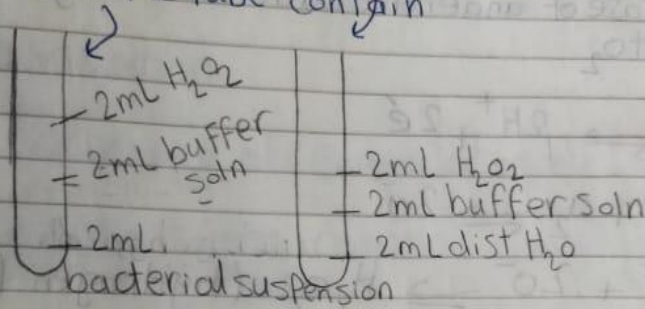 contain
2mL H2O2
2mL buffer
soln
2mL
bacterial suspension
2mL H2O2
2mL buffer soln
2mL dist H2O